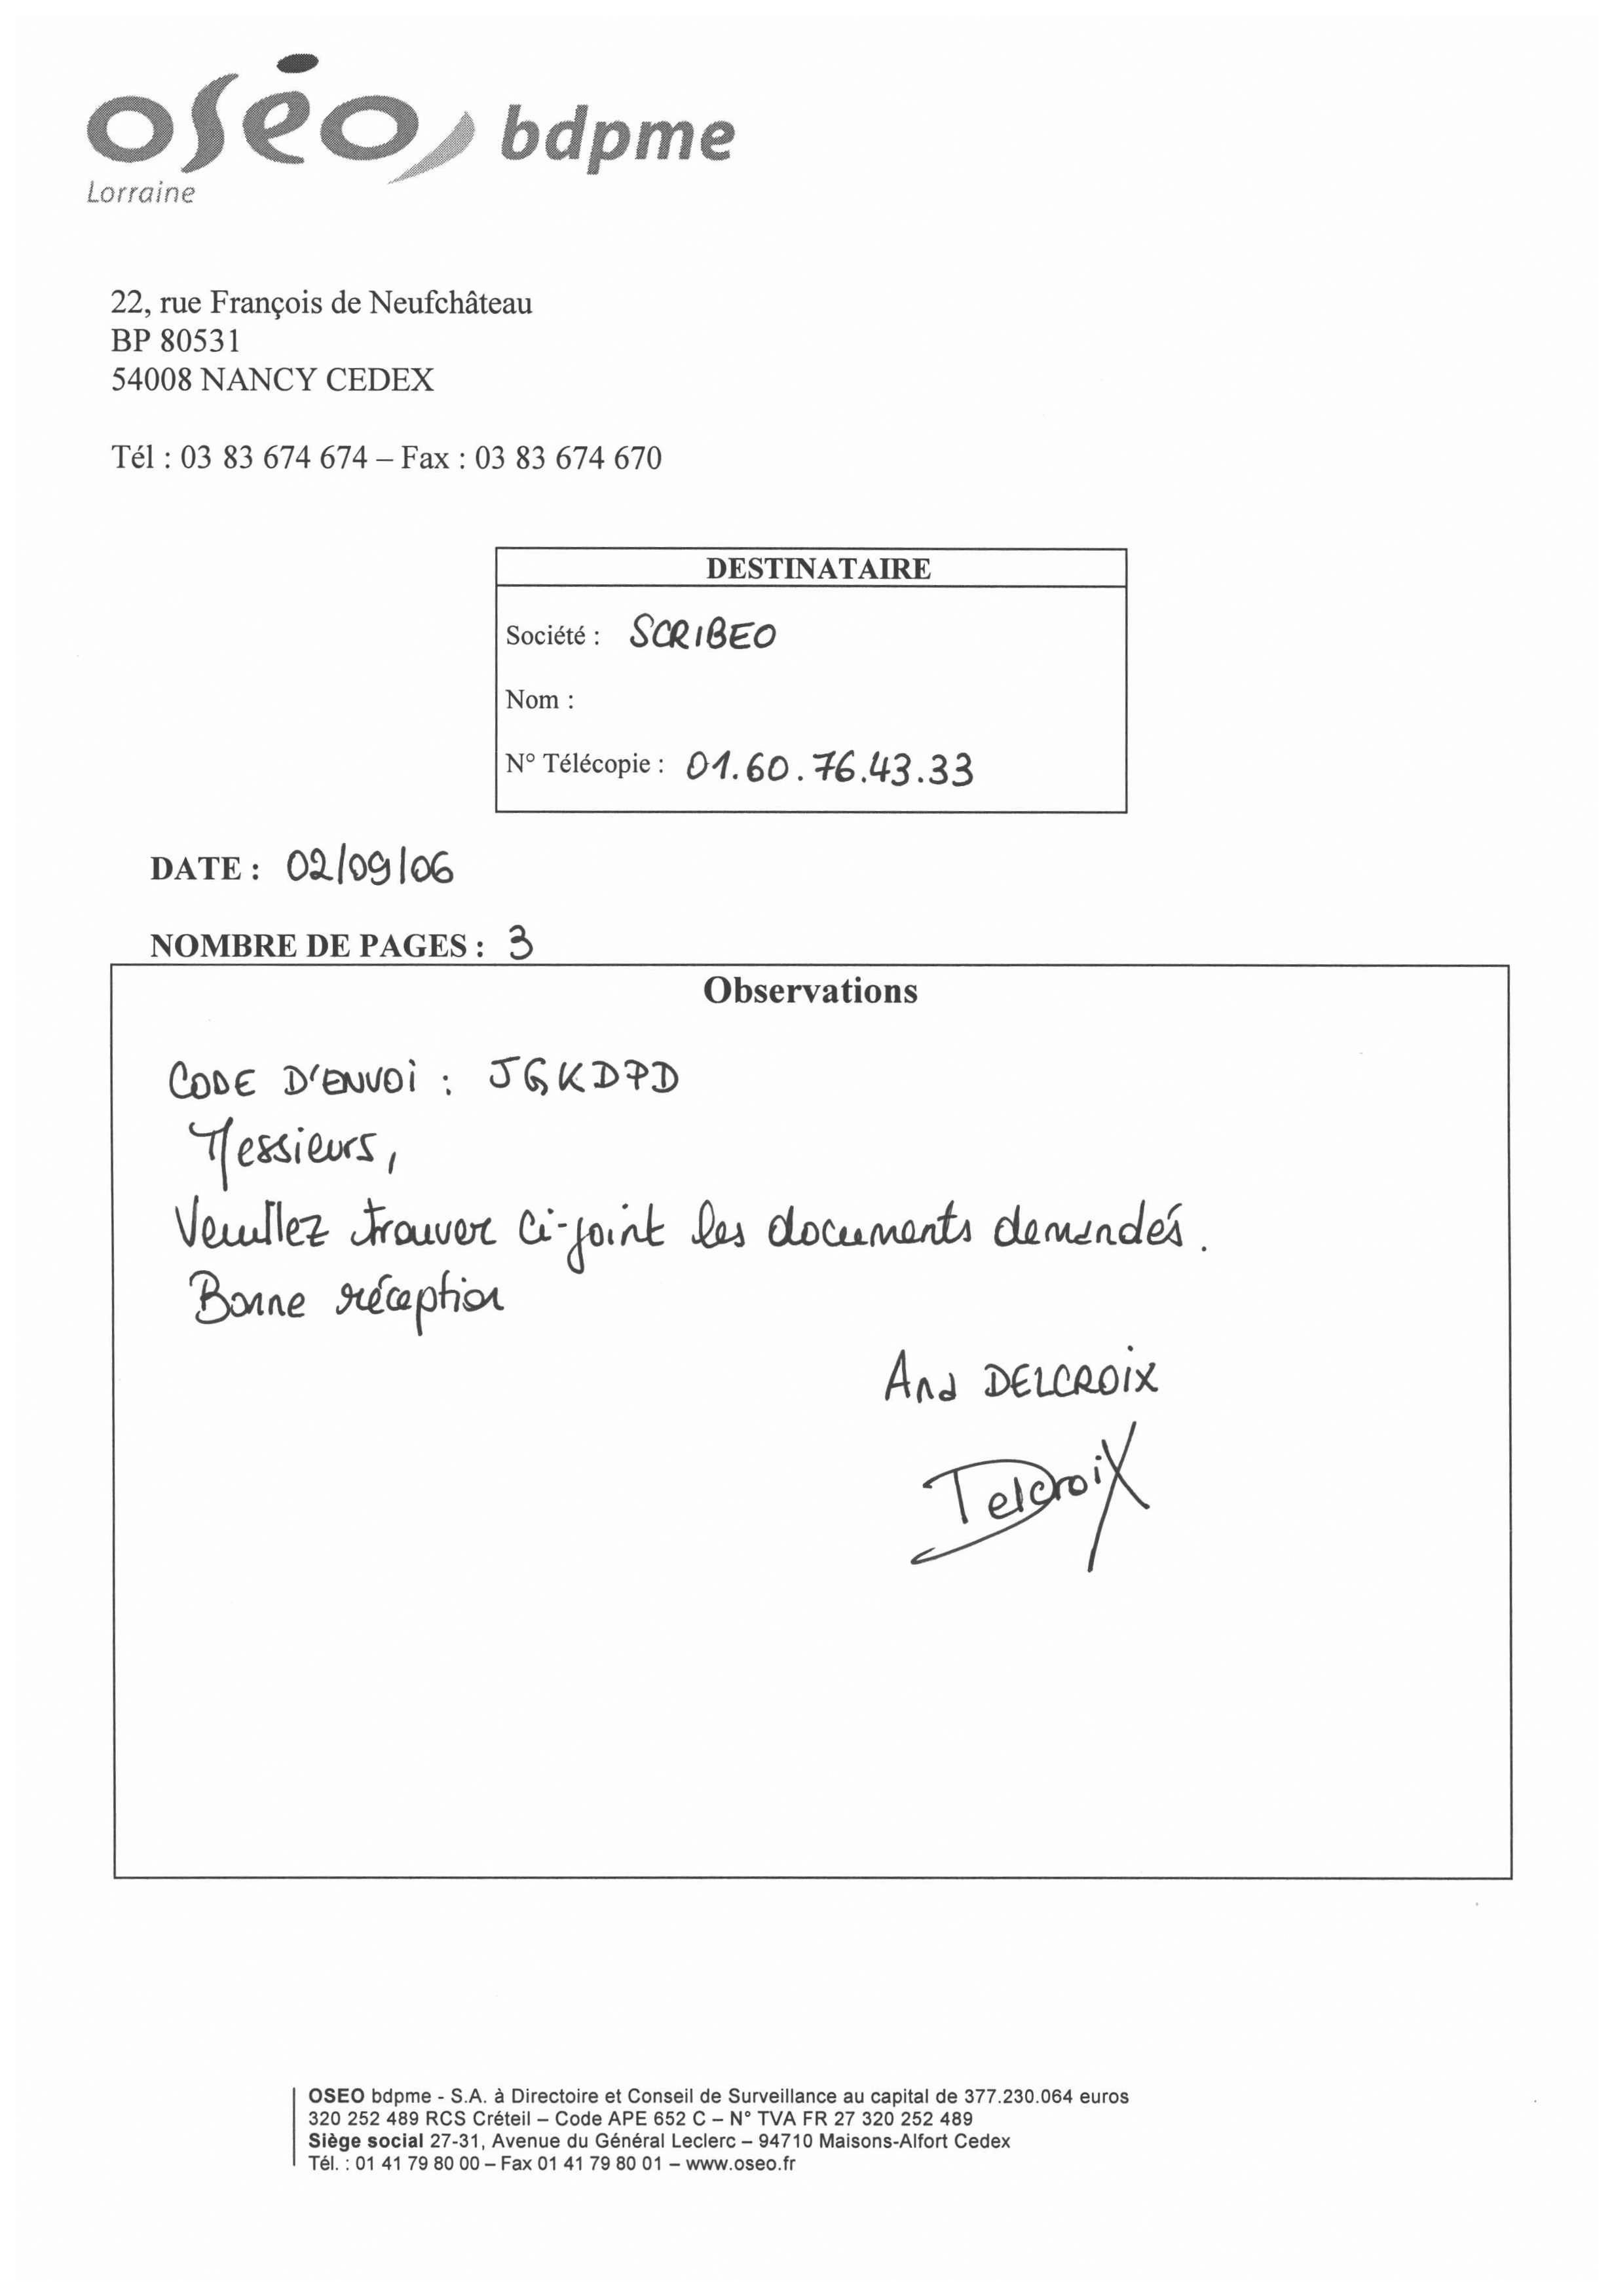 oséo bdpme
Lorraine
22, rue François de Neufchâteau
BP 80531
54008 NANCY CEDEX
Tél : 03 83 674 674 – Fax : 03 83 674 670
DESTINATAIRE
Société : SCRIBEO
Nom :
N° Télécopie : 01.60.76.43.33
DATE : 02/09/06
NOMBRE DE PAGES : 3
Observations
CODE D'ENVOi : JGKDPD
Messieurs,
Veuillez trouver ci-joint les documents demandés.
Bonne réception
Ana DELCROiX
Delcroix
OSEO bdpme - S.A. à Directoire et Conseil de Surveillance au capital de 377.230.064 euros
320 252 489 RCS Créteil – Code APE 652 C – N° TVA FR 27 320 252 489
Siège social 27-31, Avenue du Général Leclerc – 94710 Maisons-Alfort Cedex
Tél. : 01 41 79 80 00 – Fax 01 41 79 80 01 – www.oseo.fr